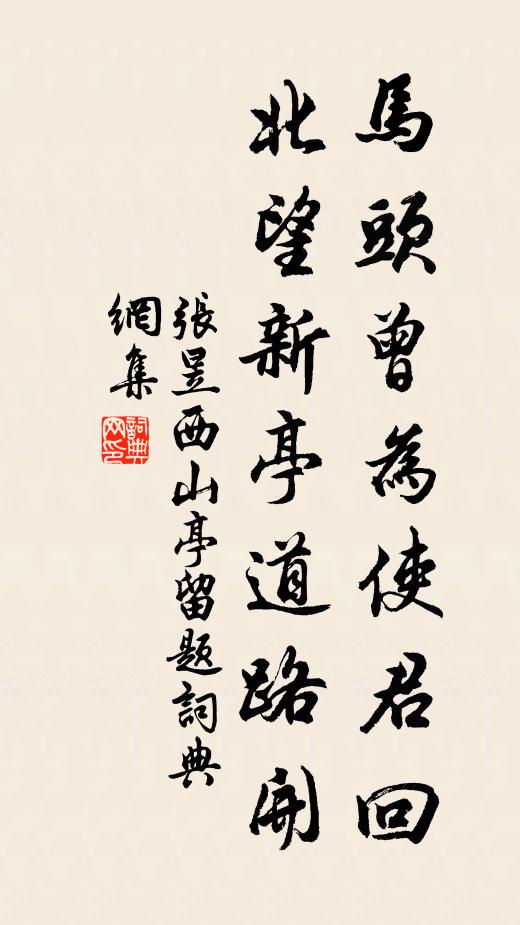 馬頭曾為使君回
北望新亭道路開
張昱西山亭留題詞典
網集
詞典
网印